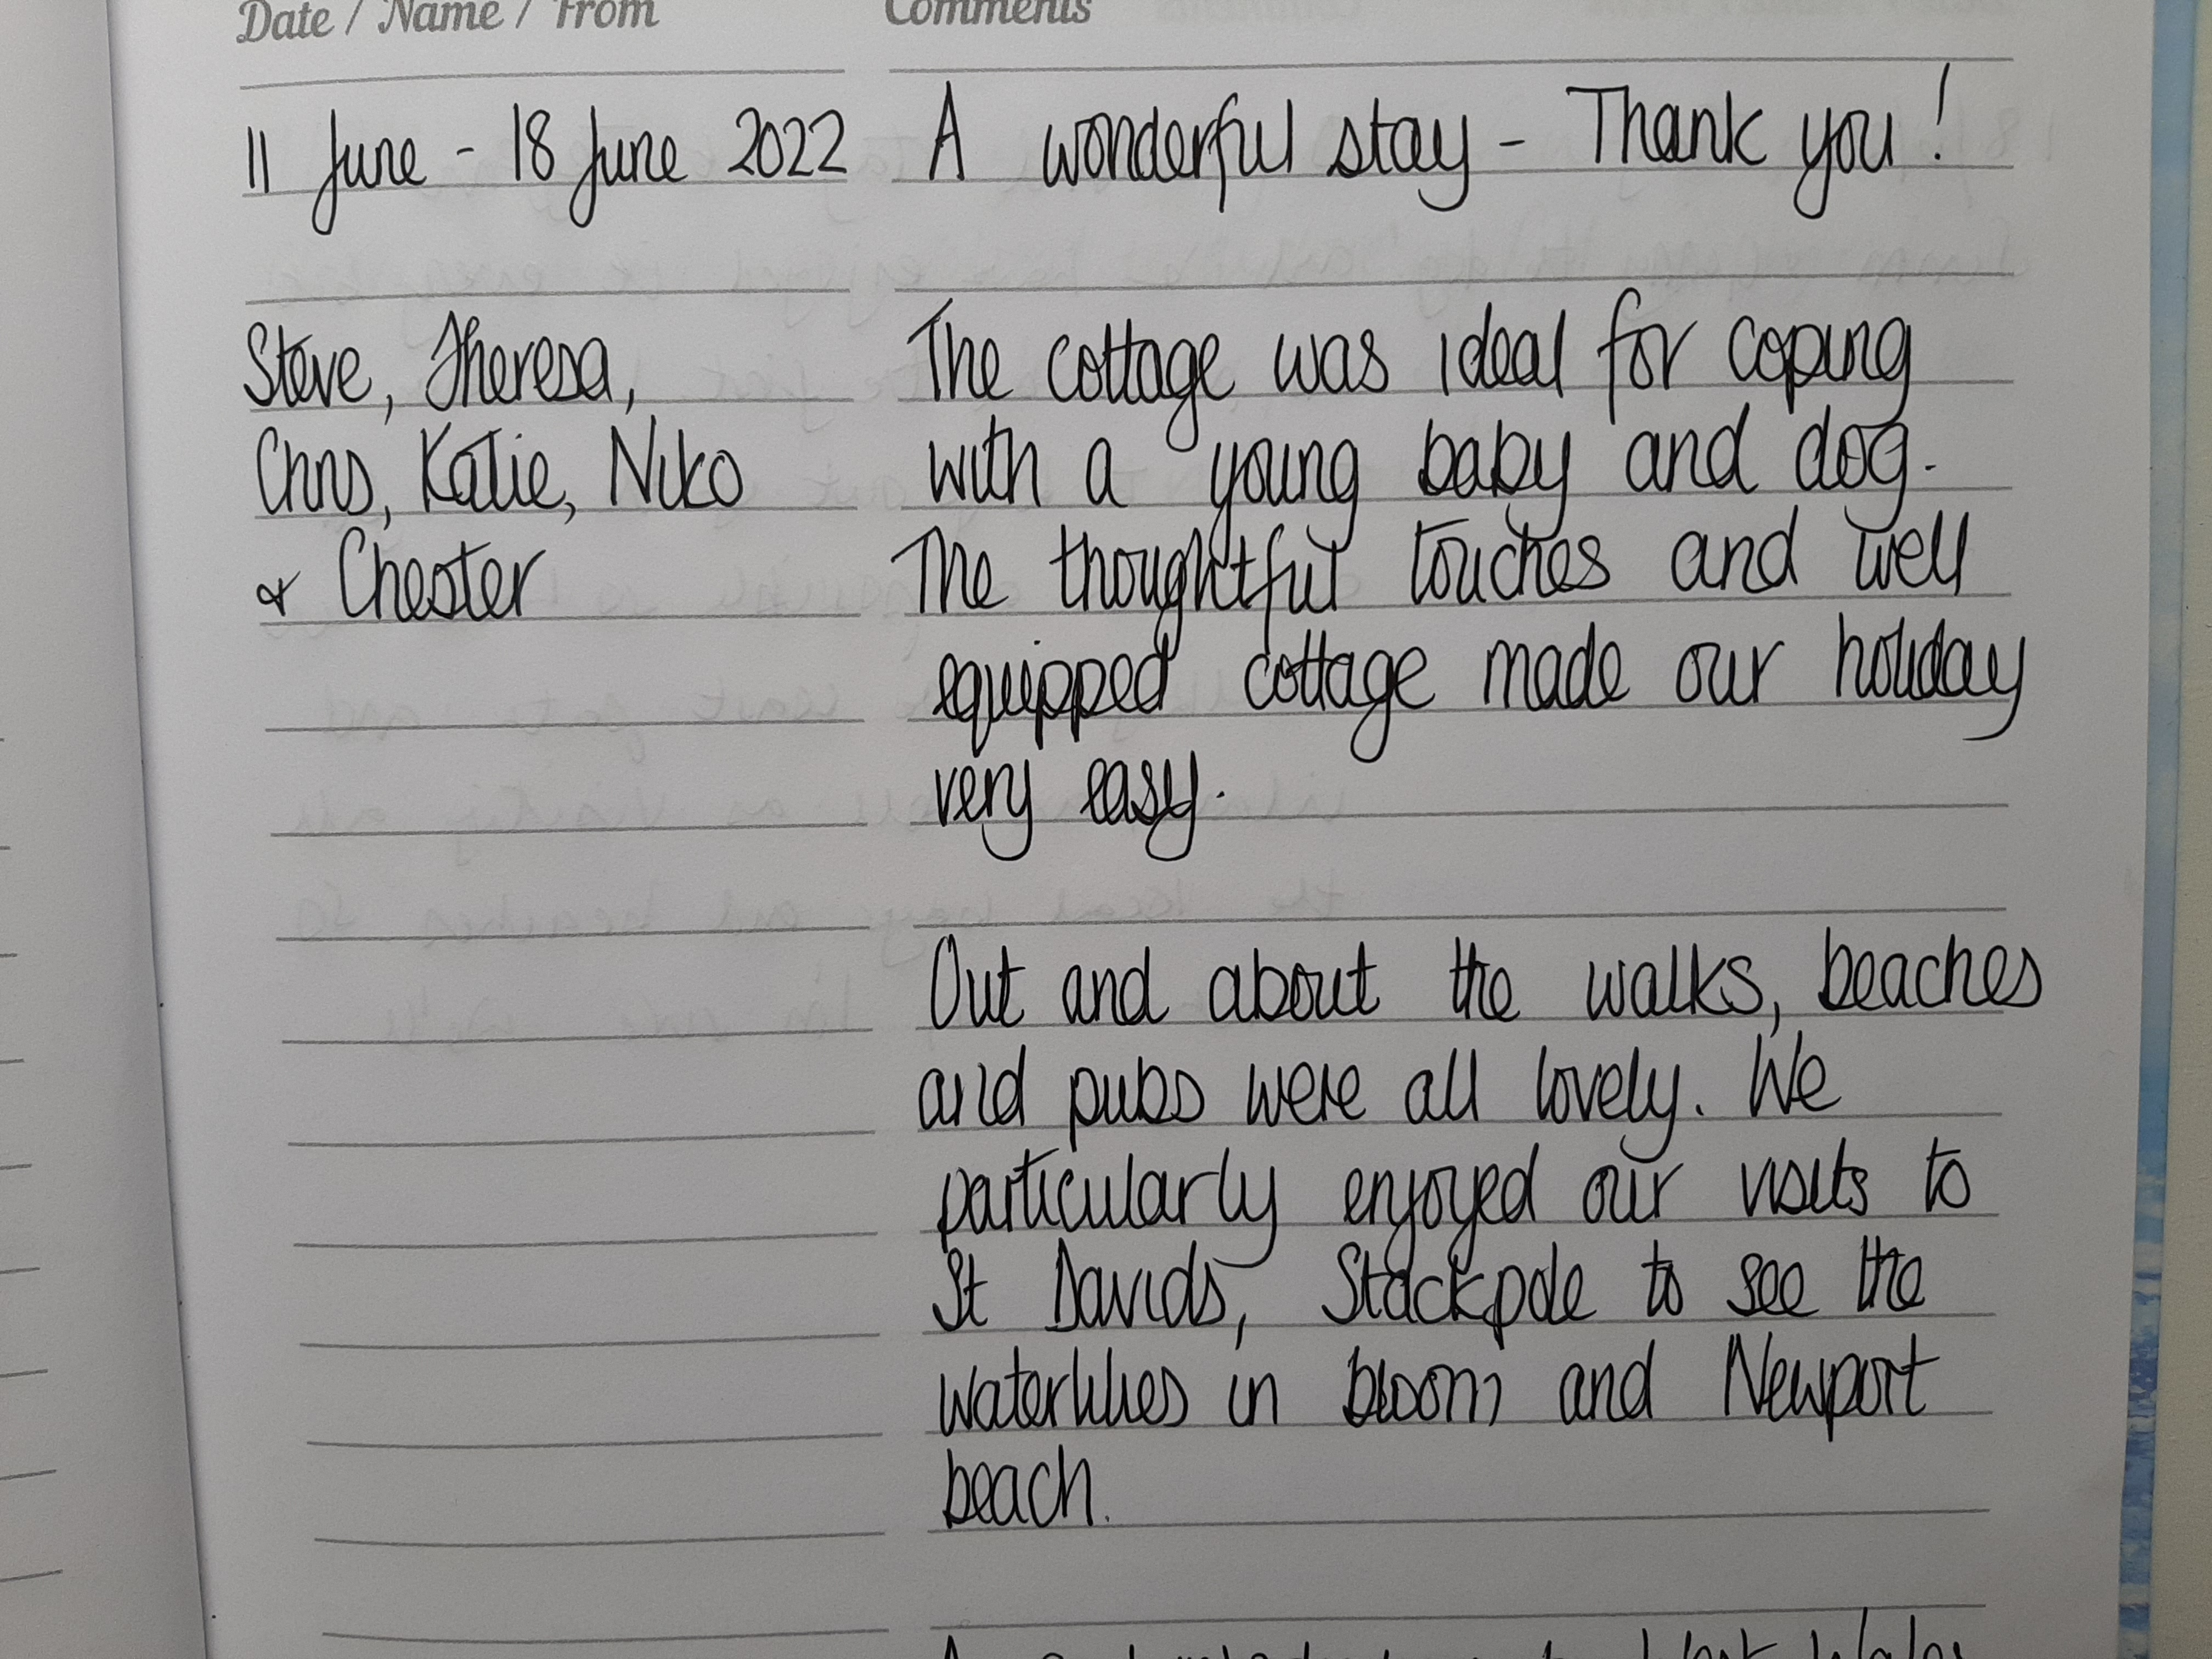 Date / Name / From
Comments
11 June - 18 June 2022
A wonderful stay - Thank you!
Steve, Theresa,
Chris, Katie, Niko
& Chester
The cottage was ideal for coping
with a young baby and dog.
The thoughtful touches and well
equipped cottage made our holiday
very easy.
Out and about the walks, beaches
and pubs were all lovely. We
particularly enjoyed our visits to
St Davids, Stackpole to see the
waterlilies in bloom and Newport
beach.